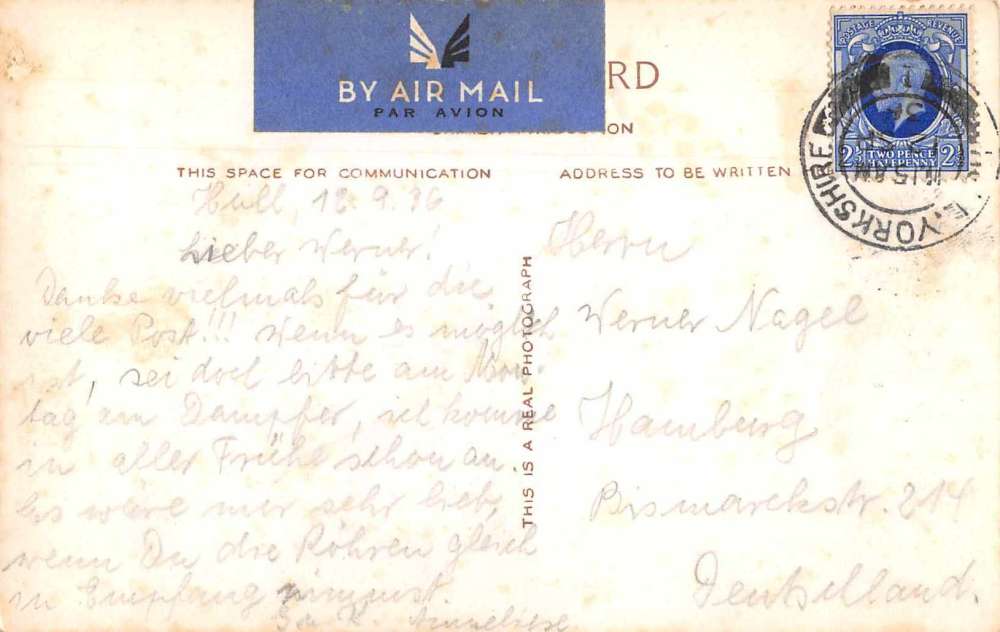 BY AIR MAIL
PAR AVION
RD
POSTAGE REVENUE
2½ TWO PENCE HALFPENNY 2½
YORKSHIRE
11.15 AM
THIS SPACE FOR COMMUNICATION
ADDRESS TO BE WRITTEN
THIS IS A REAL PHOTOGRAPH
Hull, 12.9.36
Lieber Werner!
Danke vielmals für die
viele Post!!! Wenn es möglich
ist, sei doch bitte am Mon-
tag am Dampfer, ich komme
in aller Frühe schon an.
Es wäre mir sehr lieb,
wenn Du die Röhren gleich
in Empfang nimmst.
G. u. K. Anneliese
Herrn
Werner Nagel
Hamburg
Bismarckstr. 214
Deutschland.